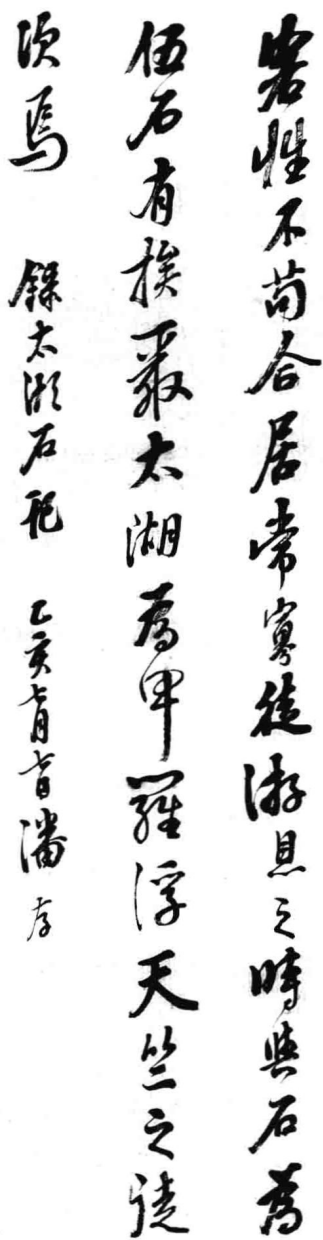 客性不苟合居常寡徒游息之時與石爲
伍石有族聚太湖爲甲羅浮天竺之徒
次焉 錄太湖石記 乙亥七月七日潘存